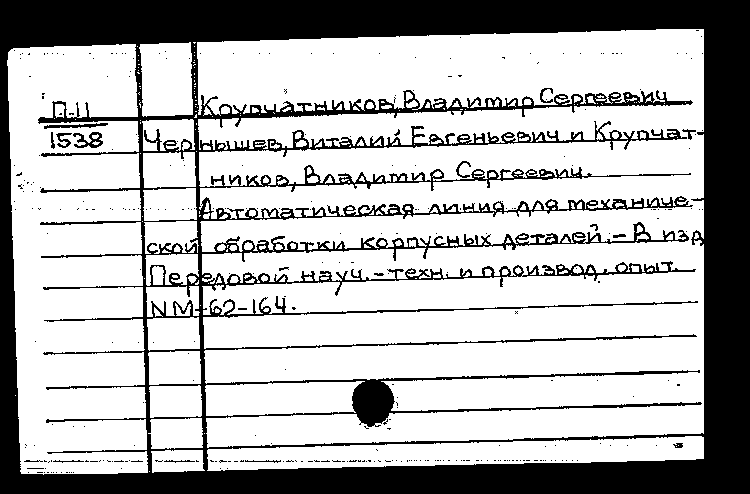 П.11 Крупчатников, Владимир Сергеевич
1538 Чернышев, Виталий Евгеньевич и Крупчат-
ников, Владимир Сергеевич.
Автоматическая линия для механиче-
ской обработки корпусных деталей. – В изд
Передовой науч. – техн. и производ. опыт.
NМ-62-164.